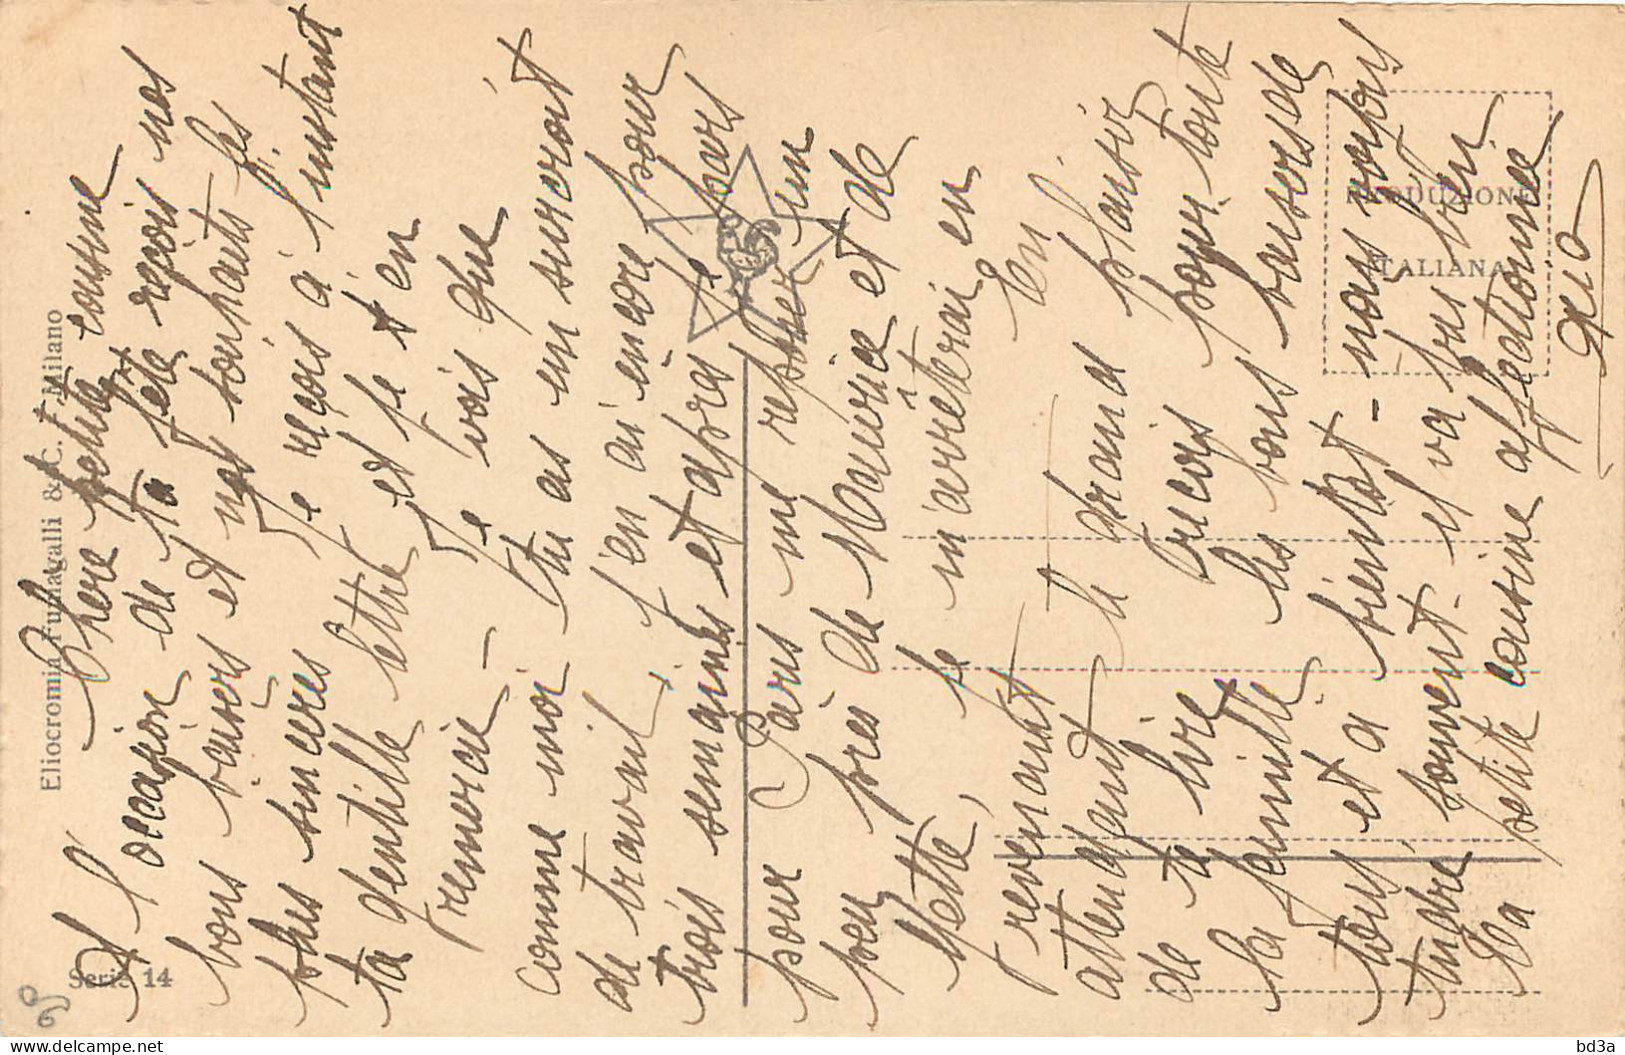 Chère petite cousine
A l'occasion de ta fête reçois nos
bons baisers et nos souhaits les
plus sincères Je reçois à l'instant
ta gentille lettre et je t'en
remercie - Je vois que
comme moi tu as un surcroit
de travail, j'en ai encore pour
trois semaines et après je pars
pour Paris me reposer un
peu près de Maurice et de
Mette, je m'arrêterai en
revenant En
attendant le grand plaisir
de te lire reçois pour toute
la famille les bons baisers de
tous, et à bientot - nous
tu souvent - il va tres bien
Ta petite cousine affectionnée
Eliocromia Fumagalli & C. - Milano
Serie 14
PRODUZIONE
ITALIANA
bd3a
delcampe.net